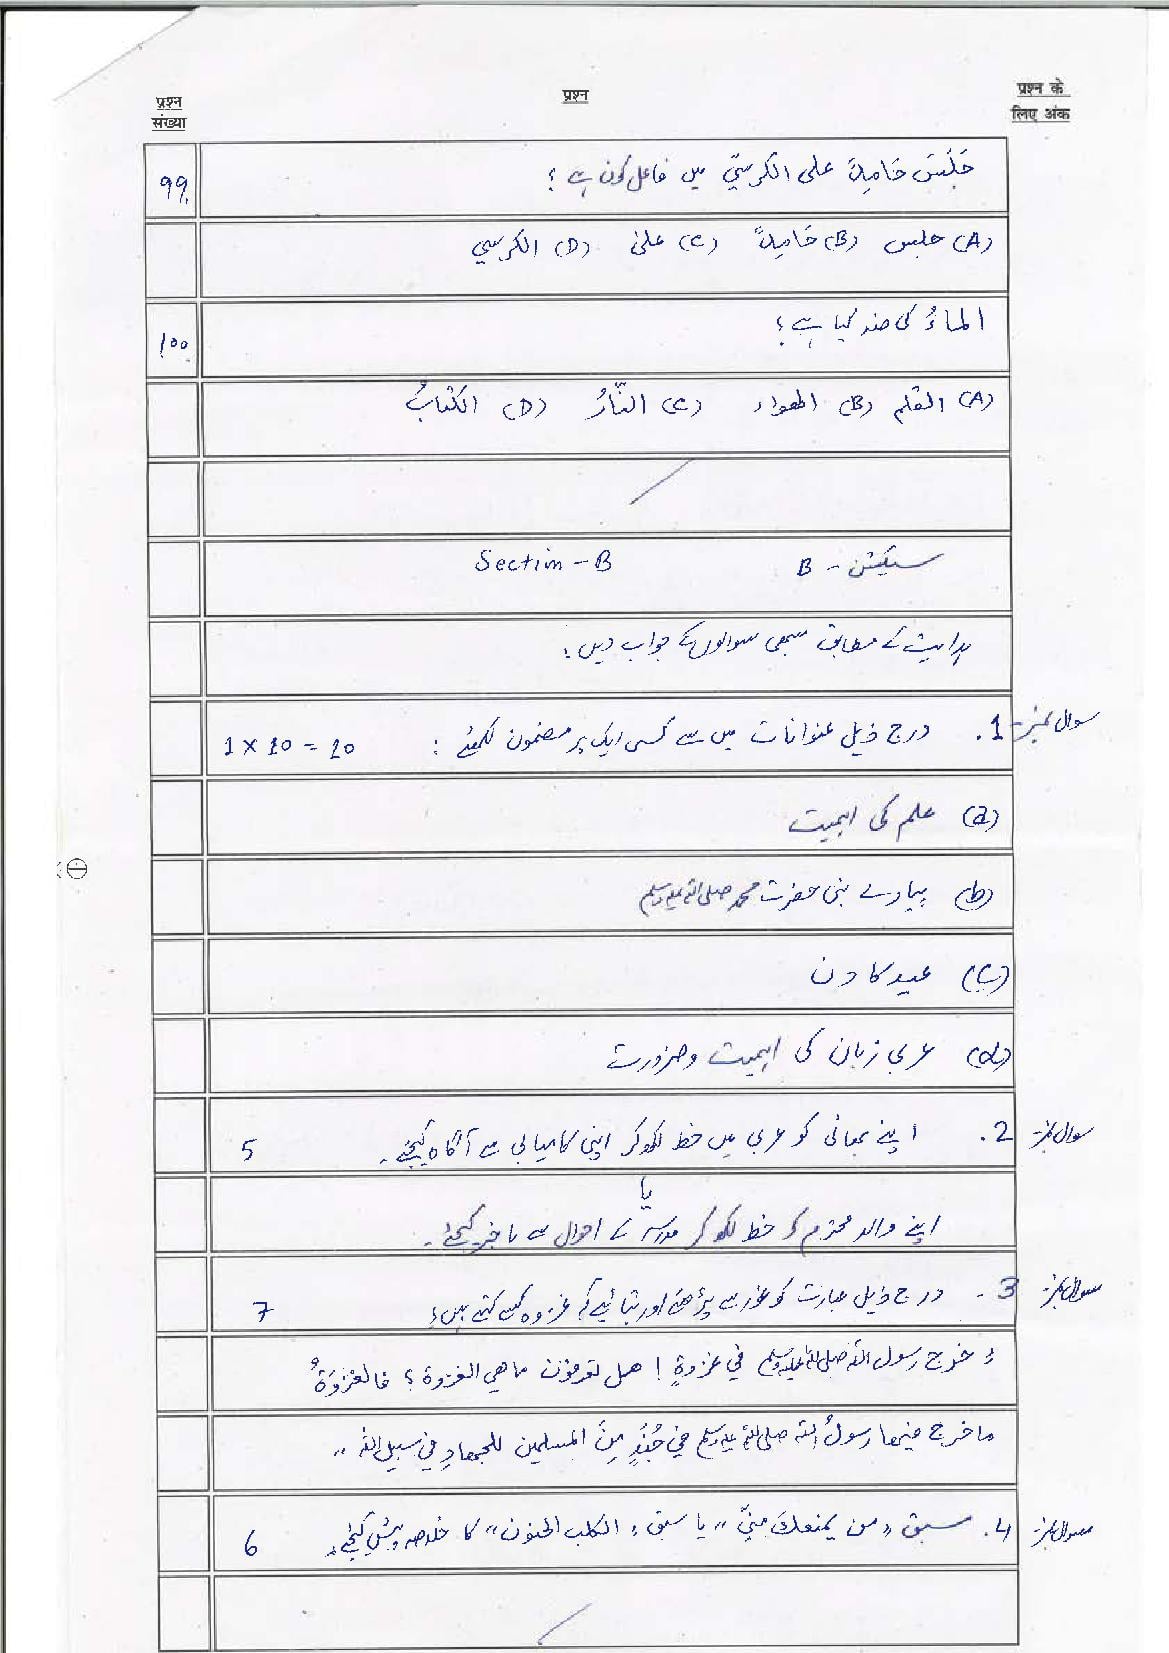 प्रश्न संख्या
प्रश्न
प्रश्न के लिए अंक
99. جَلَسَ حَامِدٌ على الكرسيِّ میں فاعل کون ہے؟
(A) جلس (B) حَامِدٌ (C) على (D) الكرسي
100. الماءُ کی ضد کیا ہے؟
(A) القلم (B) الهواء (C) النَّارُ (D) الكتابُ
سیکشن - B Section - B
ہدایت کے مطابق سبھی سوالوں کے جواب دیں:
سوال نمبر- 1. درج ذیل عنوانات میں سے کسی ایک پر مضمون لکھئے: 1 x 10 = 10
(a) علم کی اہمیت
(b) پیارے نبی حضرت محمد صلی اللہ علیہ وسلم
(c) عید کا دن
(d) عربی زبان کی اہمیت و ضرورت
سوال نمبر- 2. اپنے بھائی کو عربی میں خط لکھ کر اپنی کامیابی سے آگاہ کیجئے۔ 5
یا
اپنے والد محترم کو خط لکھ کر مدرسہ کے احوال سے باخبر کیجئے۔
سوال نمبر- 3. درج ذیل عبارت کو غور سے پڑھئے اور بتائیے کہ غزوہ کسے کہتے ہیں؟ 7
"خرج رسول الله صلى الله عليه وسلم في غزوةٍ! هل تعرفون ما هي الغزوة؟ فالغزوَةُ
ما خرج فيها رسولُ الله صلى الله عليه وسلم في جُنْدٍ مِنَ المسلمين للجهادِ في سبيل الله"
سوال نمبر- 4. سبق "من يمنعك منِّي" یا سبق "الكلب الجنون" کا خلاصہ پیش کیجئے۔ 6